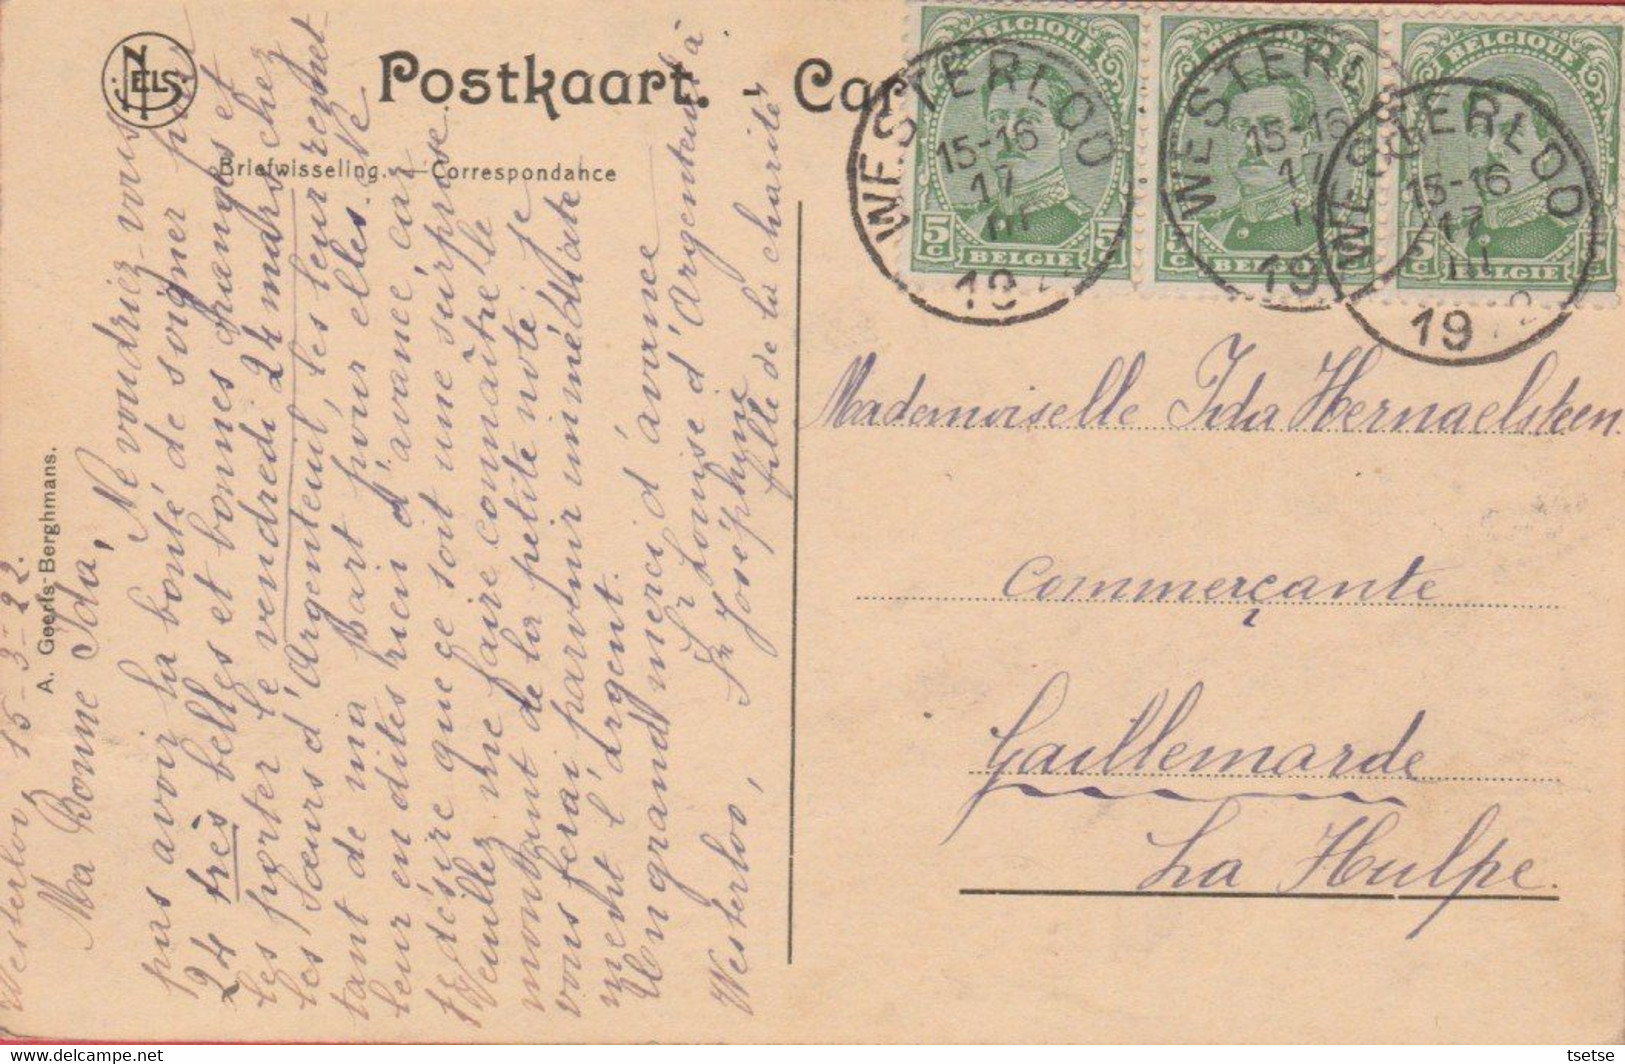 NELS
Postkaart. - Car
Briefwisseling. — Correspondance
A. Geerts-Berghmans.
Westerloo, 15-3-22.
Ma Bonne Ida,
Ne voudriez-vous
pas avoir la bonté de soigner pour
24 très belles et bonnes oranges et
les porter le vendredi 24 mars chez
les Sœurs d'Argenteuil, les leur remet-
tant de ma part pour elles. Ne
leur en dites rien d'avance, car
je désire que ce soit une surprise.
Veuillez me faire connaître le
montant de la petite note. Je
vous ferai parvenir immédiate
ment l'argent.
Un grand merci d'avance
Sr Louise d'Argenteuil à
Westerloo, Sr Joséphine
fille de la charité
BELGIQUE
5c 5c
BELGIE
BELGIQUE
5c
BELGIE
BELGIQUE
5c 5c
BELGIE
WESTERLOO
15-16
17
III
19
WESTERLOO
15-16
17
19
WESTERLOO
15-16
17
III
1922
Mademoiselle Ida Hernaelsteen
Commerçante
Gaillemarde
La Hulpe.
delcampe.net
tsetse